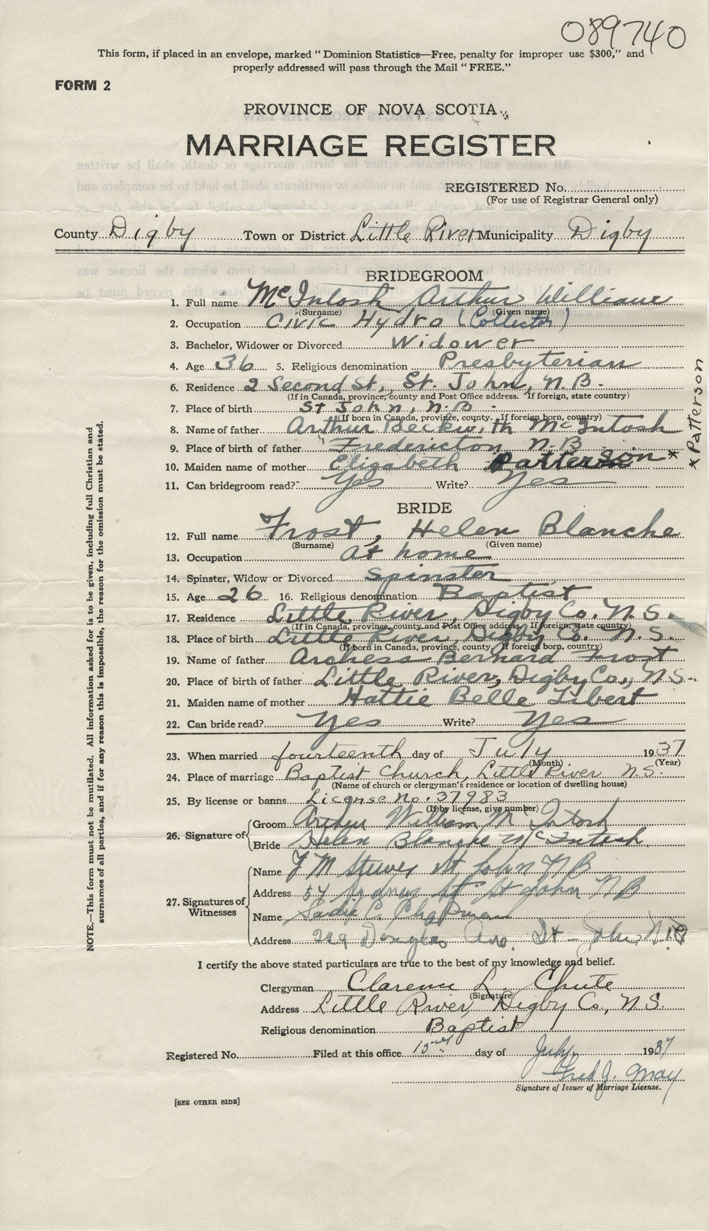 089740
This form, if placed in an envelope, marked "Dominion Statistics—Free, penalty for improper use $300," and
properly addressed will pass through the Mail "FREE."
FORM 2
PROVINCE OF NOVA SCOTIA
MARRIAGE REGISTER
REGISTERED No.
(For use of Registrar General only)
County Digby Town or District Little River Municipality Digby
BRIDEGROOM
1. Full name McIntosh Arthur William
(Surname) (Given name)
2. Occupation Civic Hydro (Collector)
3. Bachelor, Widower or Divorced Widower
4. Age 36 5. Religious denomination Presbyterian
6. Residence 2 Second St, St. John, N.B.
(If in Canada, province, county and Post Office address. If foreign, state country)
7. Place of birth St John, N.B.
(If born in Canada, province, county. If foreign born, country)
8. Name of father Arthur Beckwith McIntosh
9. Place of birth of father Fredericton N.B
10. Maiden name of mother Elizabeth Patterson *
* Patterson
11. Can bridegroom read? Yes Write? Yes
BRIDE
12. Full name Frost, Helen Blanche
(Surname) (Given name)
13. Occupation at home
14. Spinster, Widow or Divorced Spinster
15. Age 26 16. Religious denomination Baptist
17. Residence Little River, Digby Co. N.S.
(If in Canada, province, county and Post Office address. If foreign, state country)
18. Place of birth Little River, Digby Co. N.S.
(If born in Canada, province, county. If foreign born, country)
19. Name of father Bernard Frost
20. Place of birth of father Little River, Digby Co., N.S.
21. Maiden name of mother Hattie Belle Tibert
22. Can bride read? Yes Write? Yes
23. When married fourteenth day of July 1937
(Month) (Year)
24. Place of marriage Baptist Church, Little River N.S.
(Name of church or clergyman's residence or location of dwelling house)
25. By license or banns License No. 37983
(If by license, give number)
26. Signature of Groom Arthur William McIntosh
Bride Helen Blanche McIntosh
27. Signatures of Witnesses
Name St John NB
Address 54 Sydney St St John NB
Name Sadie C. Chapman
Address Ave. St John N.B
I certify the above stated particulars are true to the best of my knowledge and belief.
Clergyman Clarence L. Chute
(Signature)
Address Little River, Digby Co., N.S.
Religious denomination Baptist
Registered No. Filed at this office day of July 1937
Fred J. May
Signature of Issuer of Marriage License.
[SEE OTHER SIDE]
NOTE.—This form must not be mutilated. All information asked for is to be given, including full Christian and
surnames of all parties, and if for any reason this is impossible, the reason for the omission must be stated.